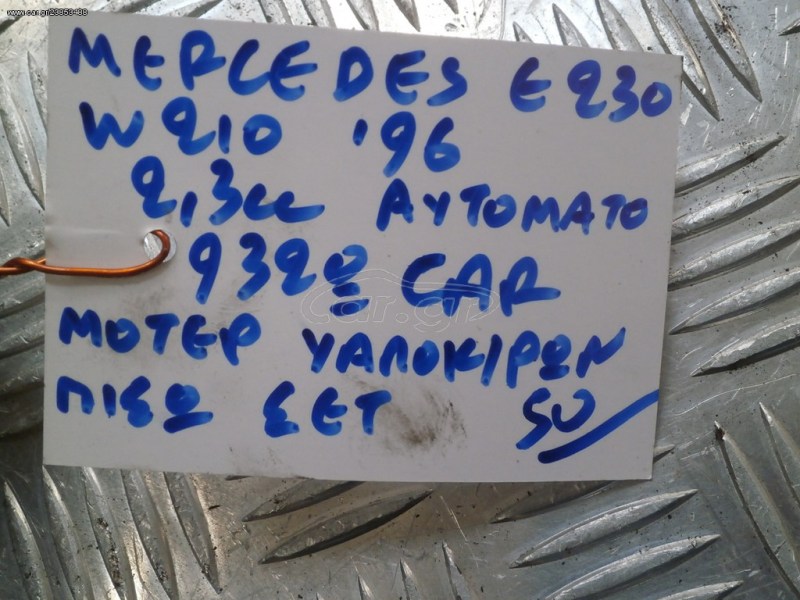 www.car.gr/23853488
MERCEDES E230
W210 '96
2,3cc ΑΥΤΟΜΑΤΟ
CAR
car.gr
ΜΟΤΕΡ ΥΑΛΟΚΙΡΩΝ
ΠΙΣΩ ΣΕΤ 50